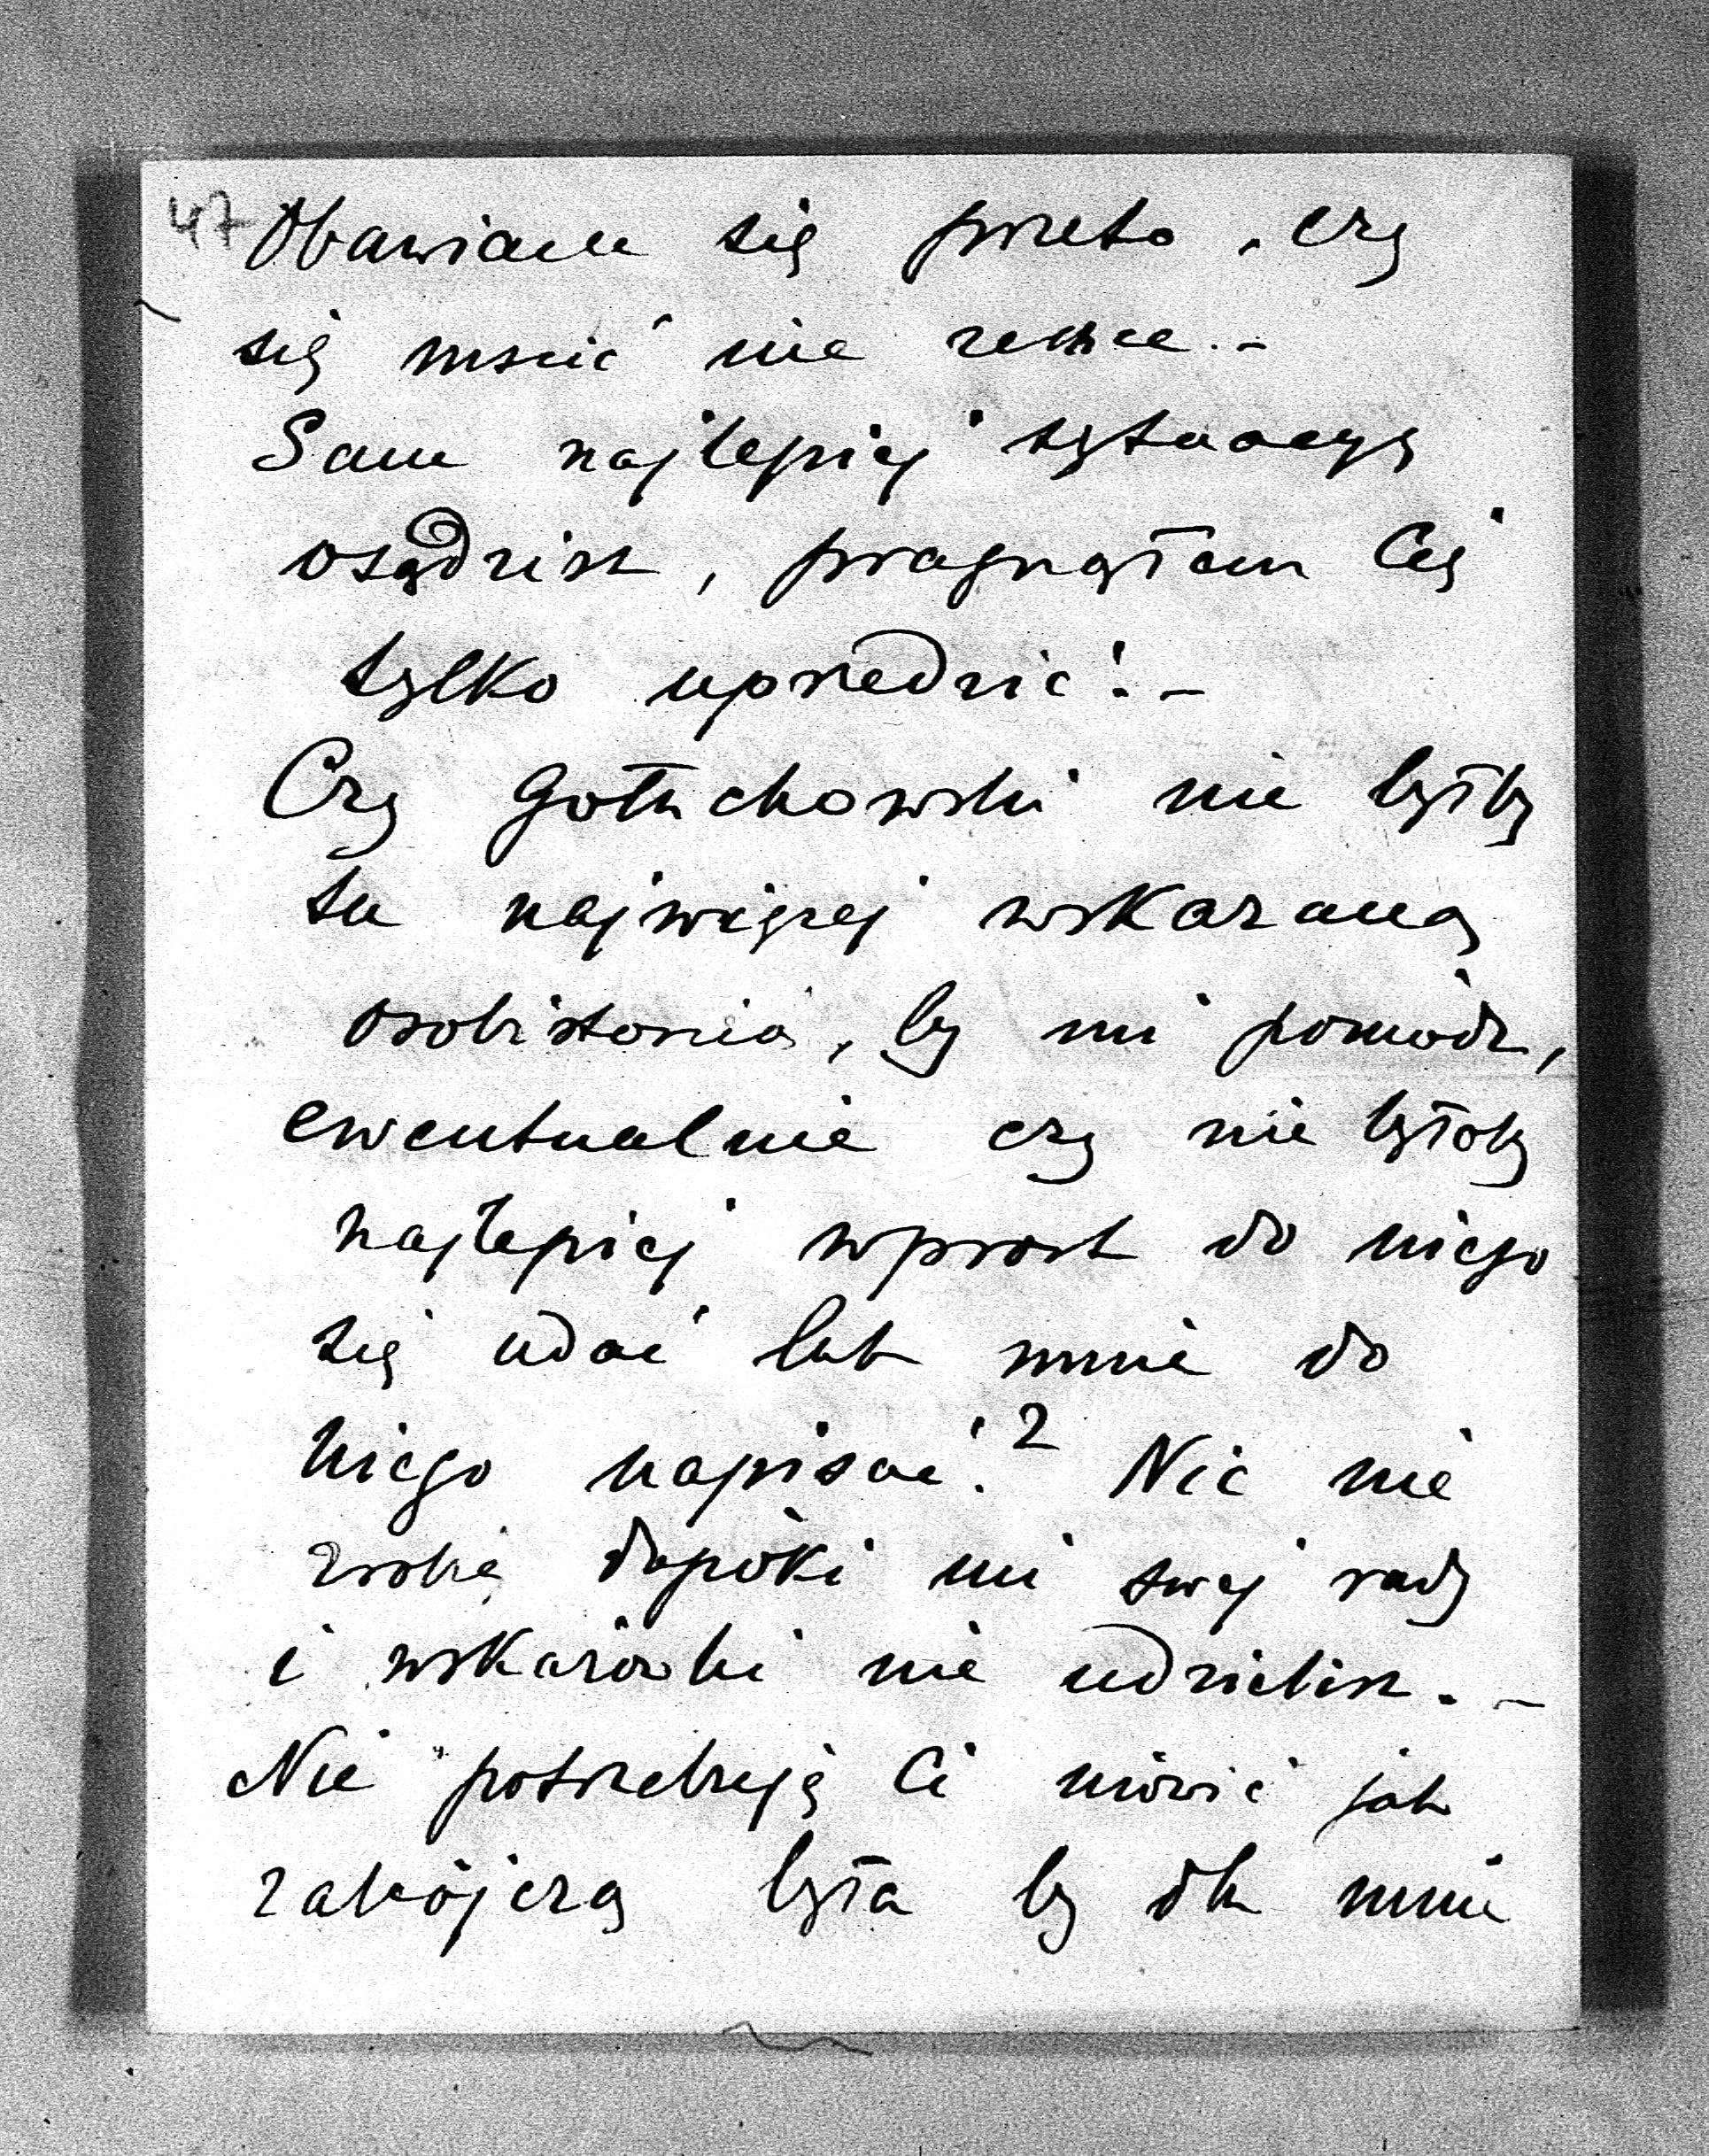 47 Obawiam się przeto, czy
się mścić nie zechce. -
Sam najlepiej sytuacyę
osądzisz, pragnąłam Cię
tylko uprzedzić! -
Czy Gołuchowski nie byłby
tu najwięcej wskazaną
osobistością, by mi pomódz,
ewentualnie czy nie byłoby
najlepiej wprost do niego
się udać lub mnie do
niego napisać? Nic nie
zrobię dopóki mi swej rady
i wskazówki nie udzielisz. -
Nie potrzebuję Ci mówić jak
zabójczą była by dla mnie